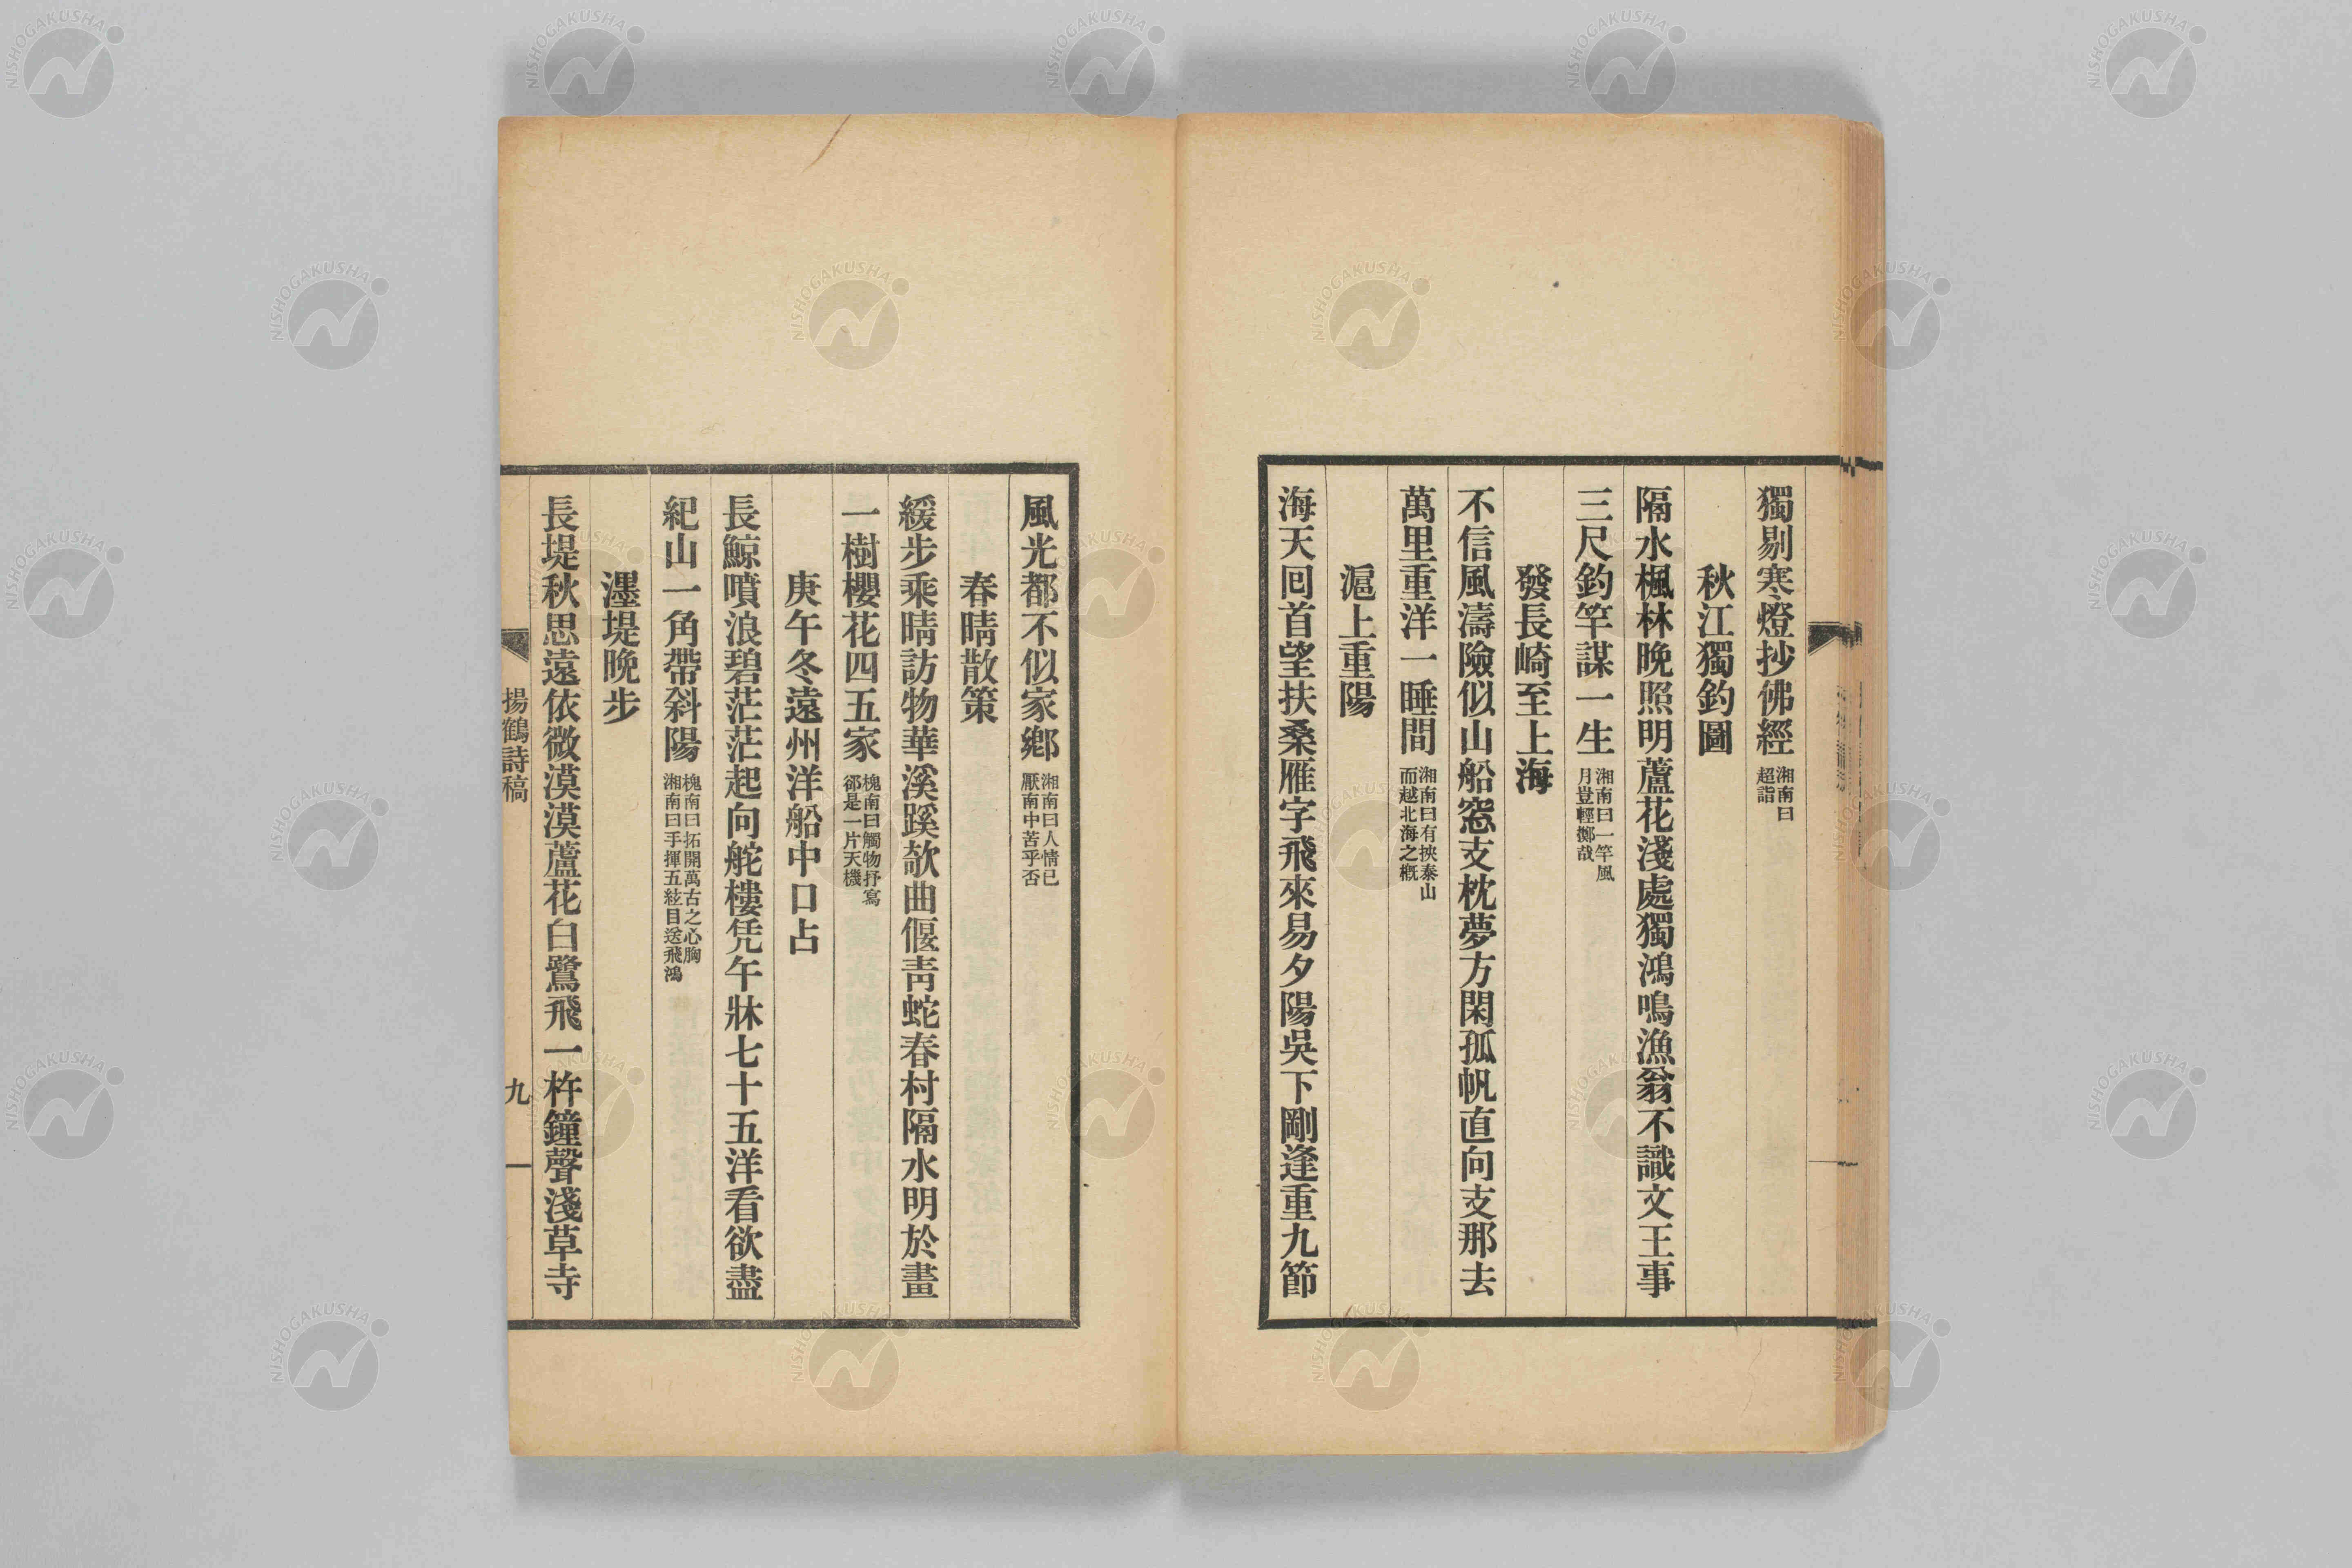 獨剔寒燈抄佛經 湘南曰超詣
秋江獨釣圖
隔水楓林晚照明蘆花淺處獨鴻鳴漁翁不識文王事
三尺釣竿謀一生 湘南曰一竿風月豈輕擲哉
發長崎至上海
不信風濤險似山船窓支枕夢方閑孤帆直向支那去
萬里重洋一睡間 湘南曰有挾泰山而越北海之概
滬上重陽
海天回首望扶桑雁字飛來易夕陽吳下剛逢重九節
風光都不似家鄉 湘南曰人情已厭南中苦乎否
春晴散策
緩步乘晴訪物華溪蹊欹曲偃靑蛇春村隔水明於畫
一樹櫻花四五家 槐南曰觸物抒寫郤是一片天機
庚午冬遠州洋船中口占
長鯨噴浪碧茫茫起向舵樓凭午牀七十五洋看欲盡
紀山一角帶斜陽 槐南曰拓開萬古之心胸湘南曰手揮五絃目送飛鴻
濹堤晚步
長堤秋思遠依微漠漠蘆花白鷺飛一杵鐘聲淺草寺
揚鶴詩稿
九
NISHOGAKUSHA